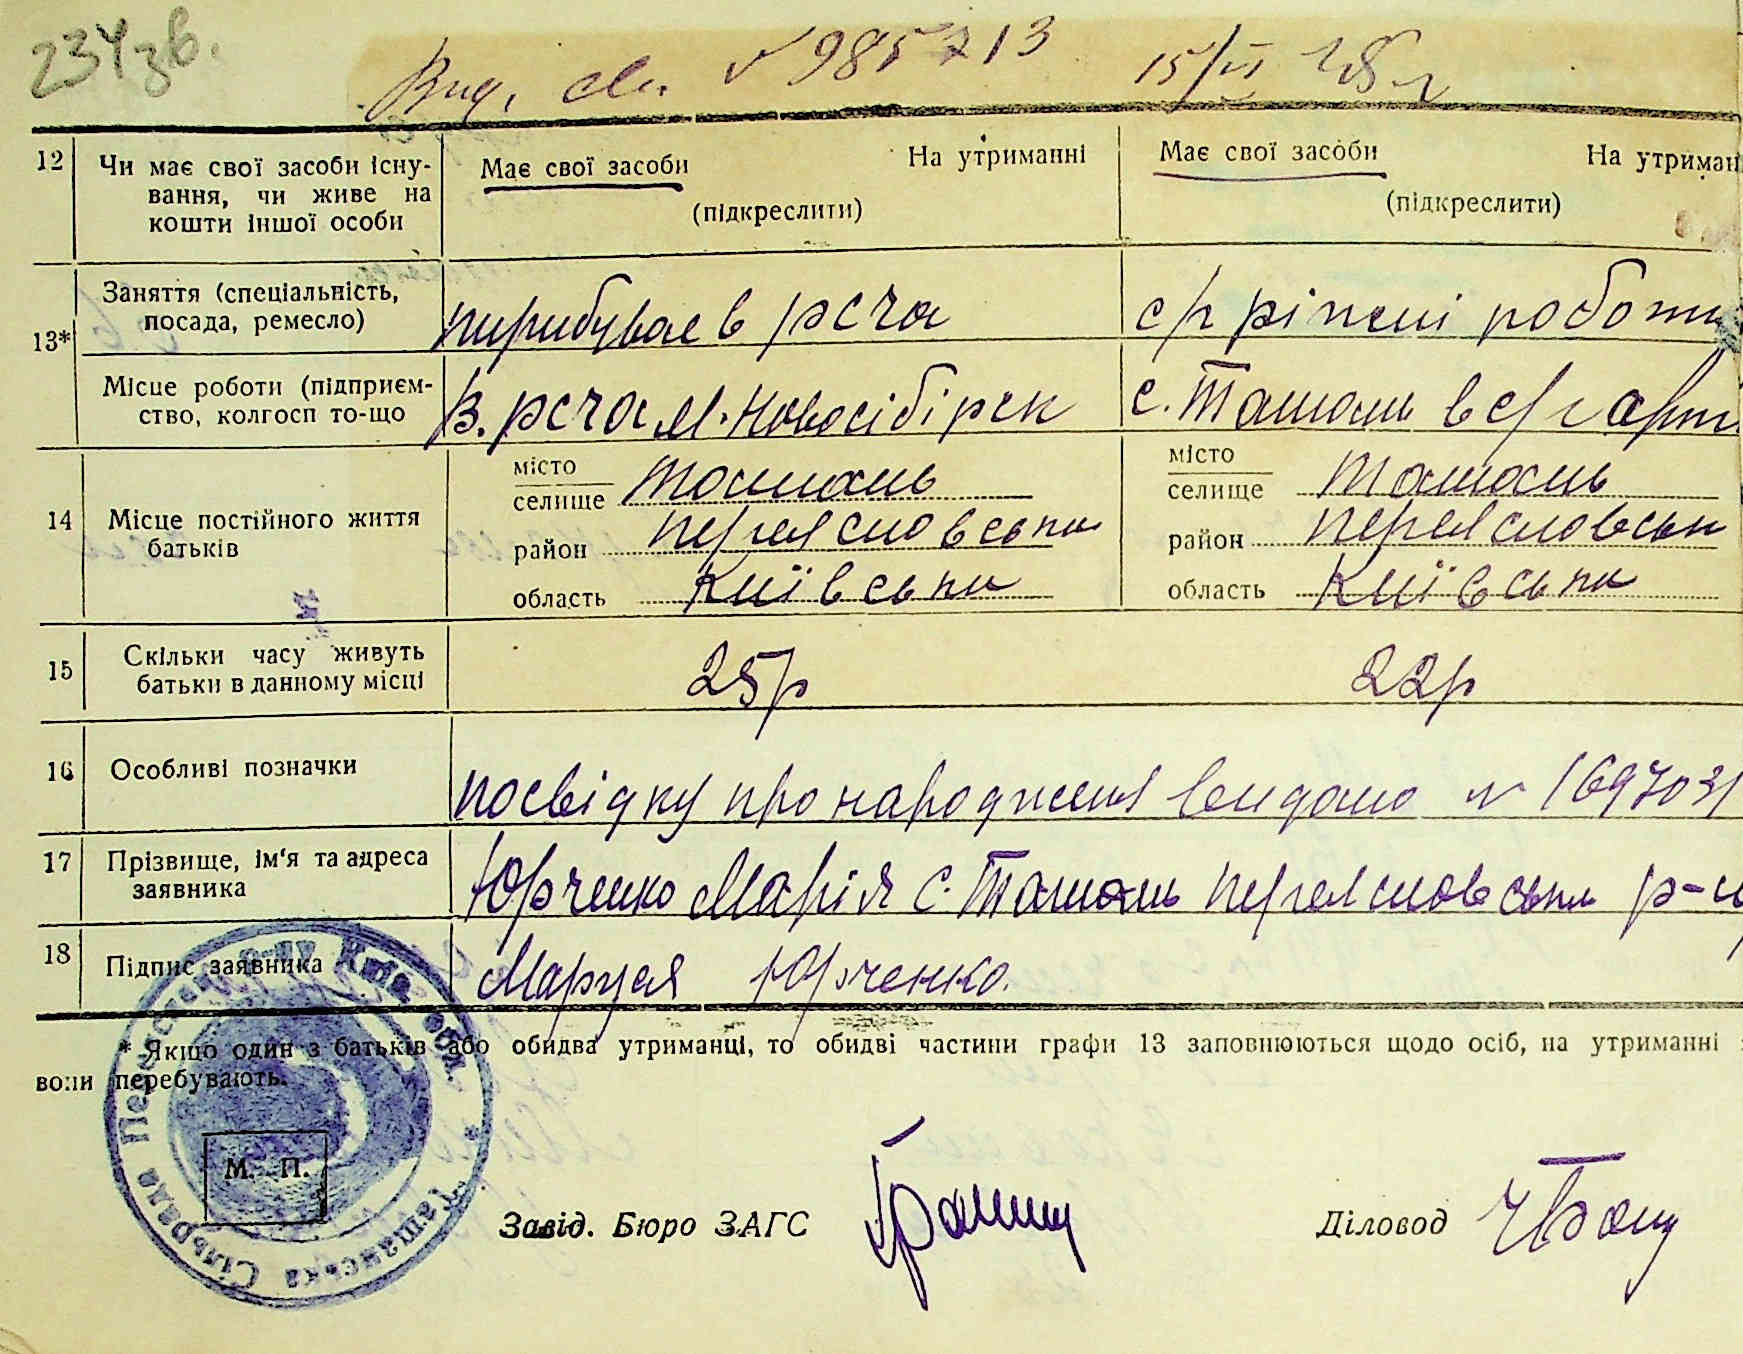 234зв.
Вид. св. № 985713 15/VI
12 Чи має свої засоби існу-
вання, чи живе на
кошти іншої особи
Має свої засоби На утриманні
(підкреслити)
Має свої засоби На утриман
(підкреслити)
13* Заняття (спеціальність,
посада, ремесло)
пирибуває в рсча
с/г ріжні роботи
Місце роботи (підприєм-
ство, колгосп то-що
В. рсча м. Новосібірск
с. Ташань в с/г арт
14 Місце постійного життя
батьків
місто
селище Ташань
район переяславськи
область Київськи
місто
селище Ташань
район переяславськи
область Київськи
15 Скільки часу живуть
батьки в данному місці
25р
22р
16 Особливі позначки
посвідку про народження видано № 1697031
17 Прізвище, ім'я та адреса
заявника
Юрченко Марія с. Ташань переяславськи р-н
18 Підпис заявника
Маруся Юрченко.
* Якщо один з батьків або обидва утриманці, то обидві частини графи 13 заповнюються щодо осіб, на утриманні
вони перебувають.
М. П.
Ташанська Сільрада
Завід. Бюро ЗАГС
Діловод